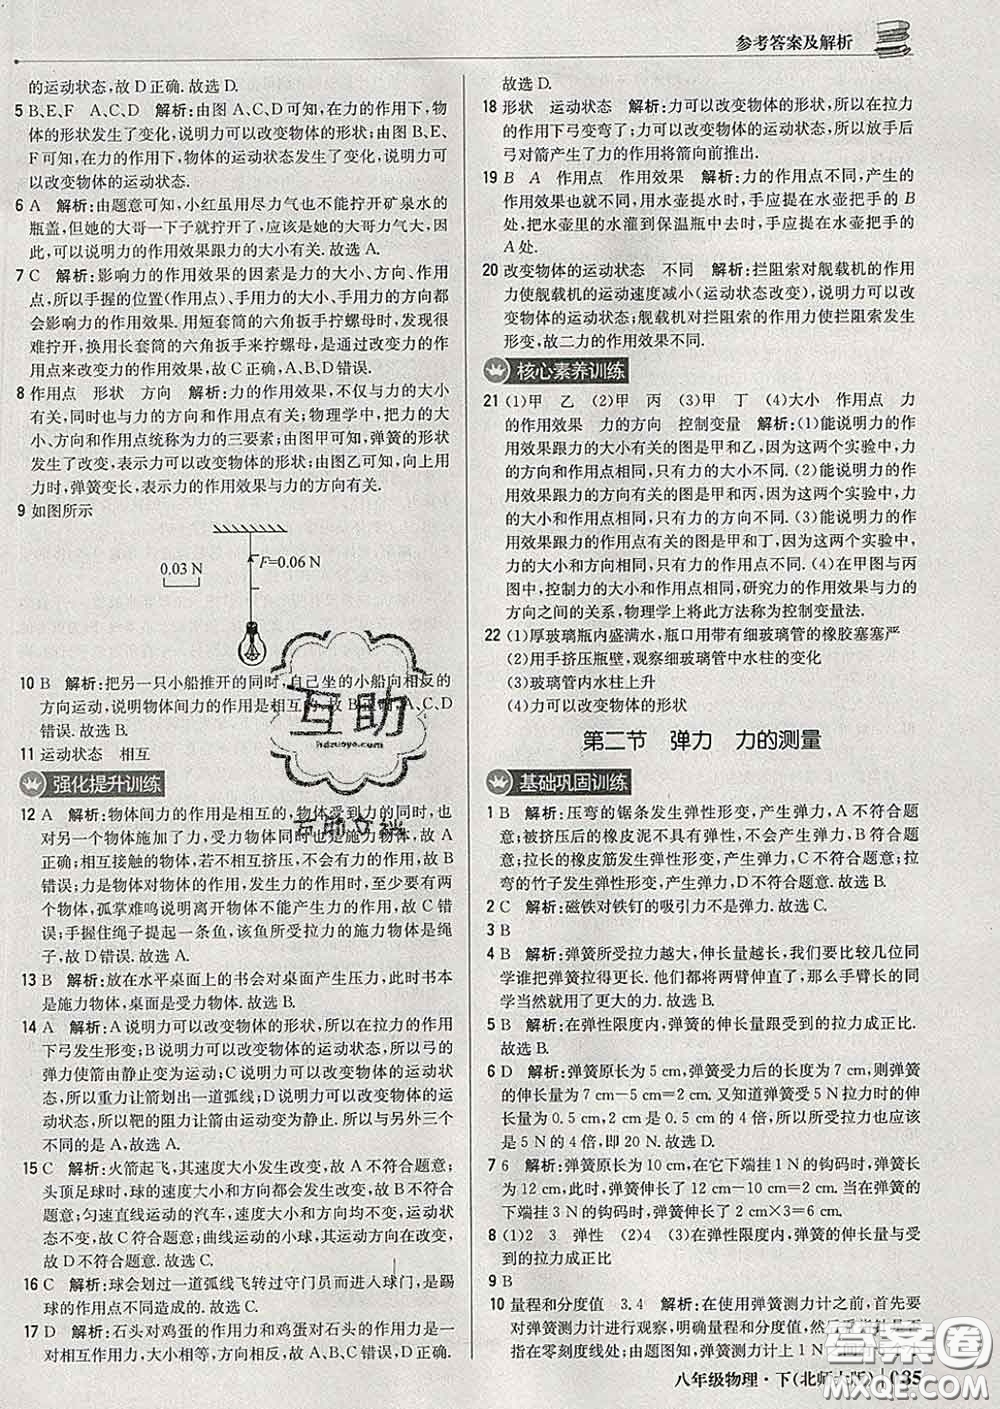 参考答案及解析
的运动状态,故 D 正确. 故选 D.
5 B、E、F　A、C、D　解析:由图 A、C、D 可知,在力的作用下,物
体的形状发生了变化,说明力可以改变物体的形状;由图 B、E、
F 可知,在力的作用下,物体的运动状态发生了变化,说明力可
以改变物体的运动状态.
6 A　解析:由题意可知,小红虽用尽力气也不能拧开矿泉水的
瓶盖,但她的大哥一下就拧开了,应该是她的大哥力气大,因
此,可以说明力的作用效果跟力的大小有关. 故选 A.
7 C　解析:影响力的作用效果的因素是力的大小、方向、作用
点,所以手握的位置(作用点)、手用力的大小、手用力的方向都
会影响力的作用效果. 用短套筒的六角扳手拧螺母时,发现很
难拧开,换用长套筒的六角扳手来拧螺母,是通过改变力的作
用点来改变力的作用效果,故 C 正确,A、B、D 错误.
8 作用点　形状　方向　解析:力的作用效果,不仅与力的大小
有关,同时也与力的方向和作用点有关;物理学中,把力的大
小、方向和作用点统称为力的三要素;由图甲可知,弹簧的形状
发生了改变,表示力可以改变物体的形状;由图乙可知,向上用
力时,弹簧变长,表示力的作用效果与力的方向有关.
9 如图所示
0.03 N
F=0.06 N
10 B　解析:把另一只小船推开的同时,自己坐的小船向相反的
方向运动,说明物体间力的作用是相互的,故 B 正确,A、C、D
错误. 故选 B.
11 运动状态　相互
强化提升训练
12 A　解析:物体间力的作用是相互的,物体受到力的同时,也
对另一个物体施加了力,受力物体同时也是施力物体,故 A
正确;相互接触的物体,若不相互挤压,不会产生力,故 B 错
误;力是物体对物体的作用,发生力的作用时至少有两个物
体,孤掌难鸣说明离开物体不能产生力的作用,故 C 错
误;手握住绳子提起一条鱼,该鱼所受拉力的施力物体是绳
子,故 D 错误. 故选 A.
13 B　解析:放在水平桌面上的书会对桌面产生压力,此时书本
是施力物体,桌面是受力物体. 故选 B.
14 A　解析:A 说明力可以改变物体的形状,所以在拉力的作用
下弓发生形变;B 说明力可以改变物体的运动状态,所以弓的
弹力使箭由静止变为运动;C 说明力可以改变物体的运动状
态,所以重力让箭划出一道弧线;D 说明力可以改变物体的运
动状态,所以靶的阻力让箭由运动变为静止. 所以与另外三个
不同的是 A,故选 A.
15 C　解析:火箭起飞,其速度大小发生改变,故 A 不符合题意;
头顶足球时,球的速度大小和方向都会发生改变,故 B 不符合
题意;匀速直线运动的汽车,速度大小和方向均不变,运动状
态不变,故 C 符合题意;曲线运动的小球,其运动方向改变,
故 D 不符合题意. 故选 C.
16 C　解析:球会划过一道弧线飞转过守门员而进入球门,是踢
球的作用点不同造成的. 故选 C.
17 D　解析:石头对鸡蛋的作用力和鸡蛋对石头的作用力是一
对相互作用力,大小相等,方向相反,故 A、B、C 错误,D 正确.
故选 D.
18 形状　运动状态　解析:力可以改变物体的形状,所以在拉力
的作用下弓变弯了;力可以改变物体的运动状态,所以放手后
弓对箭产生了力的作用将箭向前推出.
19 B　A　作用点　作用效果　解析:力的作用点不同,产生的
作用效果也就不同. 用水壶提水时,手应提在水壶的 B
处,把水壶里的水灌到保温瓶中去时,手应提在水壶的
A 处.
20 改变物体的运动状态　不同　解析:拦阻索对舰载机的作用
力使舰载机的运动速度减小(运动状态改变),说明力可以改
变物体的运动状态;舰载机对拦阻索的作用力使拦阻索发生
形变,故二力的作用效果不同.
核心素养训练
21 (1)甲　乙　(2)甲　丙　(3)甲　丁　(4)大小　作用点　力
的作用效果　力的方向　控制变量　解析:(1)能说明力的
作用效果跟力的大小有关的图是甲和乙,因为这两个实验中,力
的方向和作用点相同,只有力的大小不同. (2)能说明力的作
用效果跟力的方向有关的图是甲和丙,因为这两个实验中,力
的大小和作用点相同,只有力的方向不同. (3)能说明力的作
用效果跟力的作用点有关的图是甲和丁,因为这两个实验中,
力的大小和方向相同,只有力的作用点不同. (4)在甲图与丙
图中,控制力的大小和作用点相同,研究力的作用效果与力的
方向之间的关系,物理学上将此方法称为控制变量法.
22 (1)厚玻璃瓶内盛满水,瓶口用带有细玻璃管的橡胶塞塞严
(2)用手挤压瓶壁,观察细玻璃管中水柱的变化
(3)玻璃管内水柱上升
(4)力可以改变物体的形状
第二节　弹力　力的测量
基础巩固训练
1 B　解析:压弯的锯条发生弹性形变,产生弹力,A 不符合题
意;被挤压后的橡皮泥不具有弹性,不会产生弹力,B 符合题
意;拉长的橡皮筋发生弹性形变,产生弹力,C 不符合题意;拉
弯的竹子发生弹性形变,产生弹力,D 不符合题意. 故选 B.
2 C　解析:磁铁对铁钉的吸引力不是弹力. 故选 C.
3 B
4 B　解析:弹簧所受拉力越大,伸长量越长,我们要比较几位同
学谁把弹簧拉得更长. 他们都将两臂伸直了,那么手臂长的同
学当然就用了更大的力. 故选 B.
5 B　解析:在弹性限度内,弹簧的伸长量跟受到的拉力成正比.
故选 B.
6 D　解析:弹簧原长为 5 cm,弹簧受力后的长度为 7 cm,则弹簧
的伸长量为 7 cm－5 cm=2 cm. 又知道弹簧受 5 N 拉力时的
伸长量为 0.5 cm,2 cm 是 0.5 cm 的 4 倍,所以所受拉力也应该
是 5 N 的 4 倍,即 20 N. 故选 D.
7 6　解析:弹簧原长为 10 cm,在它下端挂 1 N 的钩码时,弹簧伸
长量为 2 cm,因此,弹簧伸长量与拉力的关系为 2 cm/N. 当弹簧
的下端挂 3 N 的钩码时,弹簧伸长量为 2 cm×3=6 cm.
8 (1)2　3　弹性　(2)4　(3)在弹性限度内,弹簧的伸长量与受
到的拉力成正比
9 B
10 量程和分度值　3.4　解析:在使用弹簧测力计之前,首先要
对弹簧测力计进行观察,明确量程和分度值,然
指在零刻度线处;由题图知,弹簧测力计上 1 N
八年级物理·下(北师大版) 035
互助
hdzuoye.com
答案圈
MXQE.COM